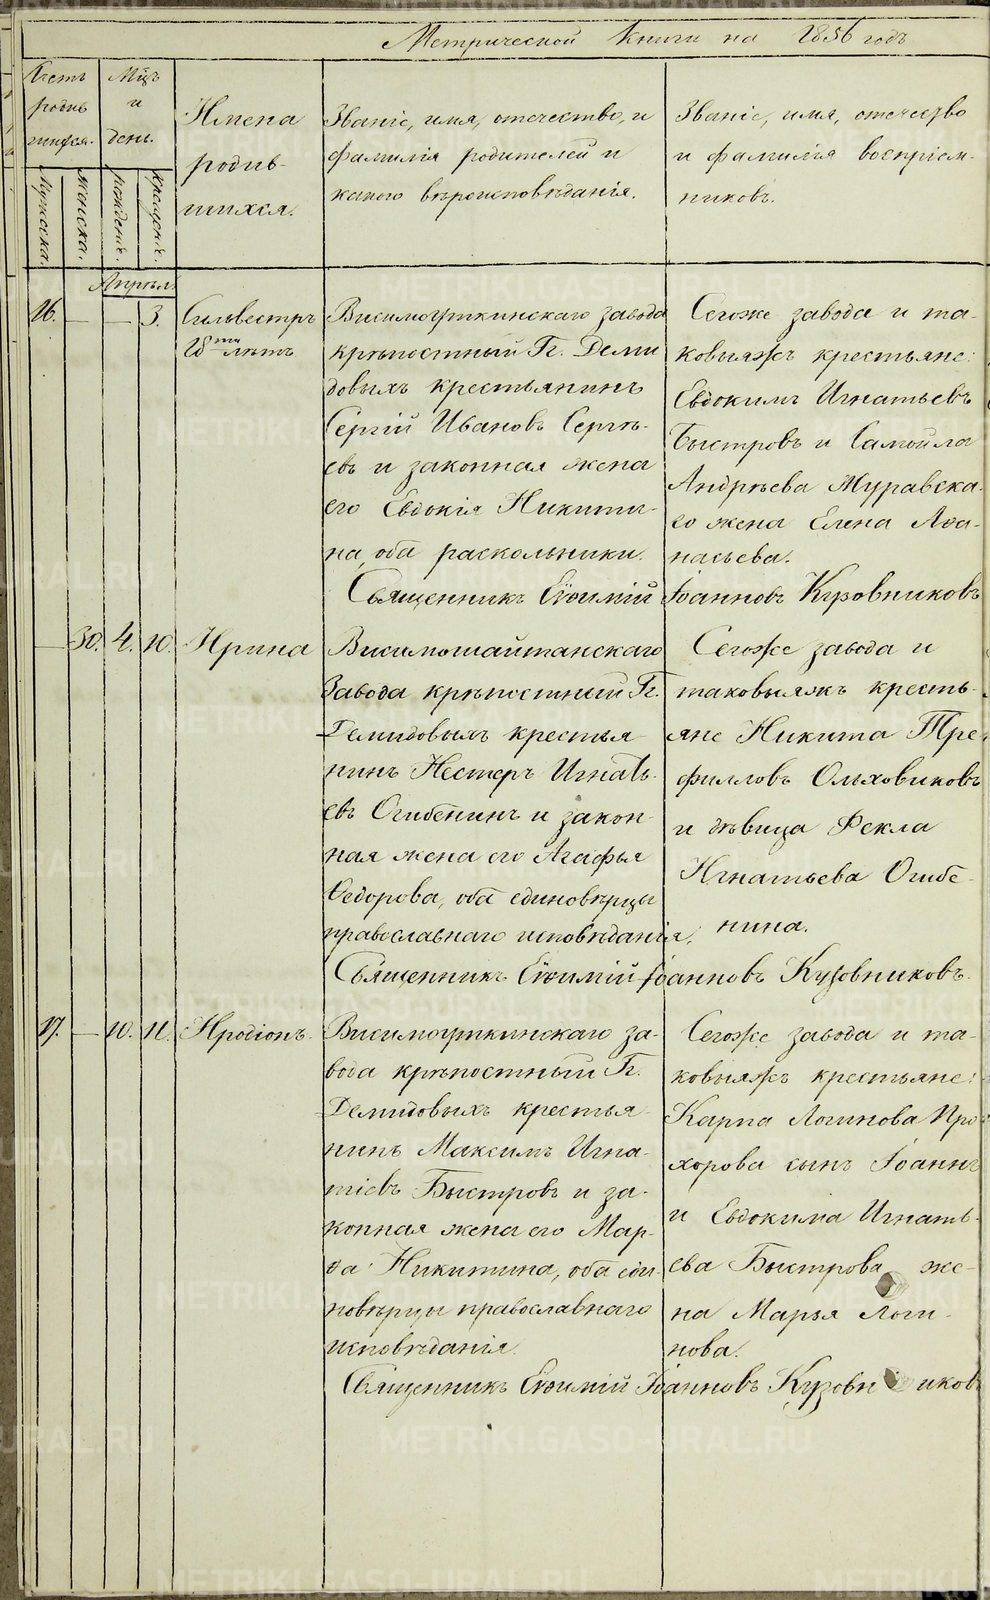 Метрической книги на 1856 годъ
Счетъ
родив
шихся.
Мужеска.
Женска.
Мцъ
и
день.
рожденія.
крещенія.
Имена
родив-
шихся.
Званіе, имя, отечество, и
фамилія родителей и
какого вѣроисповѣданія.
Званіе, имя, отечество
и фамилія воспріем-
никовъ.
Апрѣль.
26. — — 3.
Сильвестръ
18ти лѣтъ
Висимоуткинскаго завода
крѣпостный Гг. Деми
довыхъ крестьянинъ
Сергій Ивановъ Сергѣ-
евъ и законная жена
его Евдокія Никити-
на, оба раскольники.
Сегоже завода и та-
ковыяжъ крестьяне:
Евдокимъ Игнатьевъ
Быстровъ и Самойла
Андрѣева Муравска-
го жена Елена Аѳа-
насьева.
Священникъ Евѳимій Іоанновъ Кузовниковъ
— 30. 4. 10.
Ирина
Висимошайтанскаго
Завода крѣпостный Гг.
Демидовыхъ крестья-
нинъ Нестеръ Игнать-
евъ Огибенинъ и закон-
ная жена его Агафья
Ѳедорова, оба единовѣрцы
православнаго исповѣданія.
Сегоже завода и
таковыяжъ кресть-
яне Никита Тре-
филловъ Ольховиковъ
и дѣвица Фекла
Игнатьева Огибе-
нина.
Священникъ Евѳимій Іоанновъ Кузовниковъ.
27. — 10. 11.
Иродіонъ.
Висимоуткинскаго за-
вода крѣпостный Гг.
Демидовыхъ крестья-
нинъ Максимъ Игна-
тіевъ Быстровъ и за-
конная жена его Мар-
ѳа Никитина, оба еди-
новѣрцы православнаго
исповѣданія.
Сегоже завода и та-
ковыяжъ крестьяне:
Карпа Логинова Про-
хорова сынъ Іоаннъ
и Евдокима Игнать-
ева Быстрова же-
на Марья Логи-
нова.
Священникъ Евѳимій Іоанновъ Кузовниковъ
METRIKI.GASO-URAL.RU